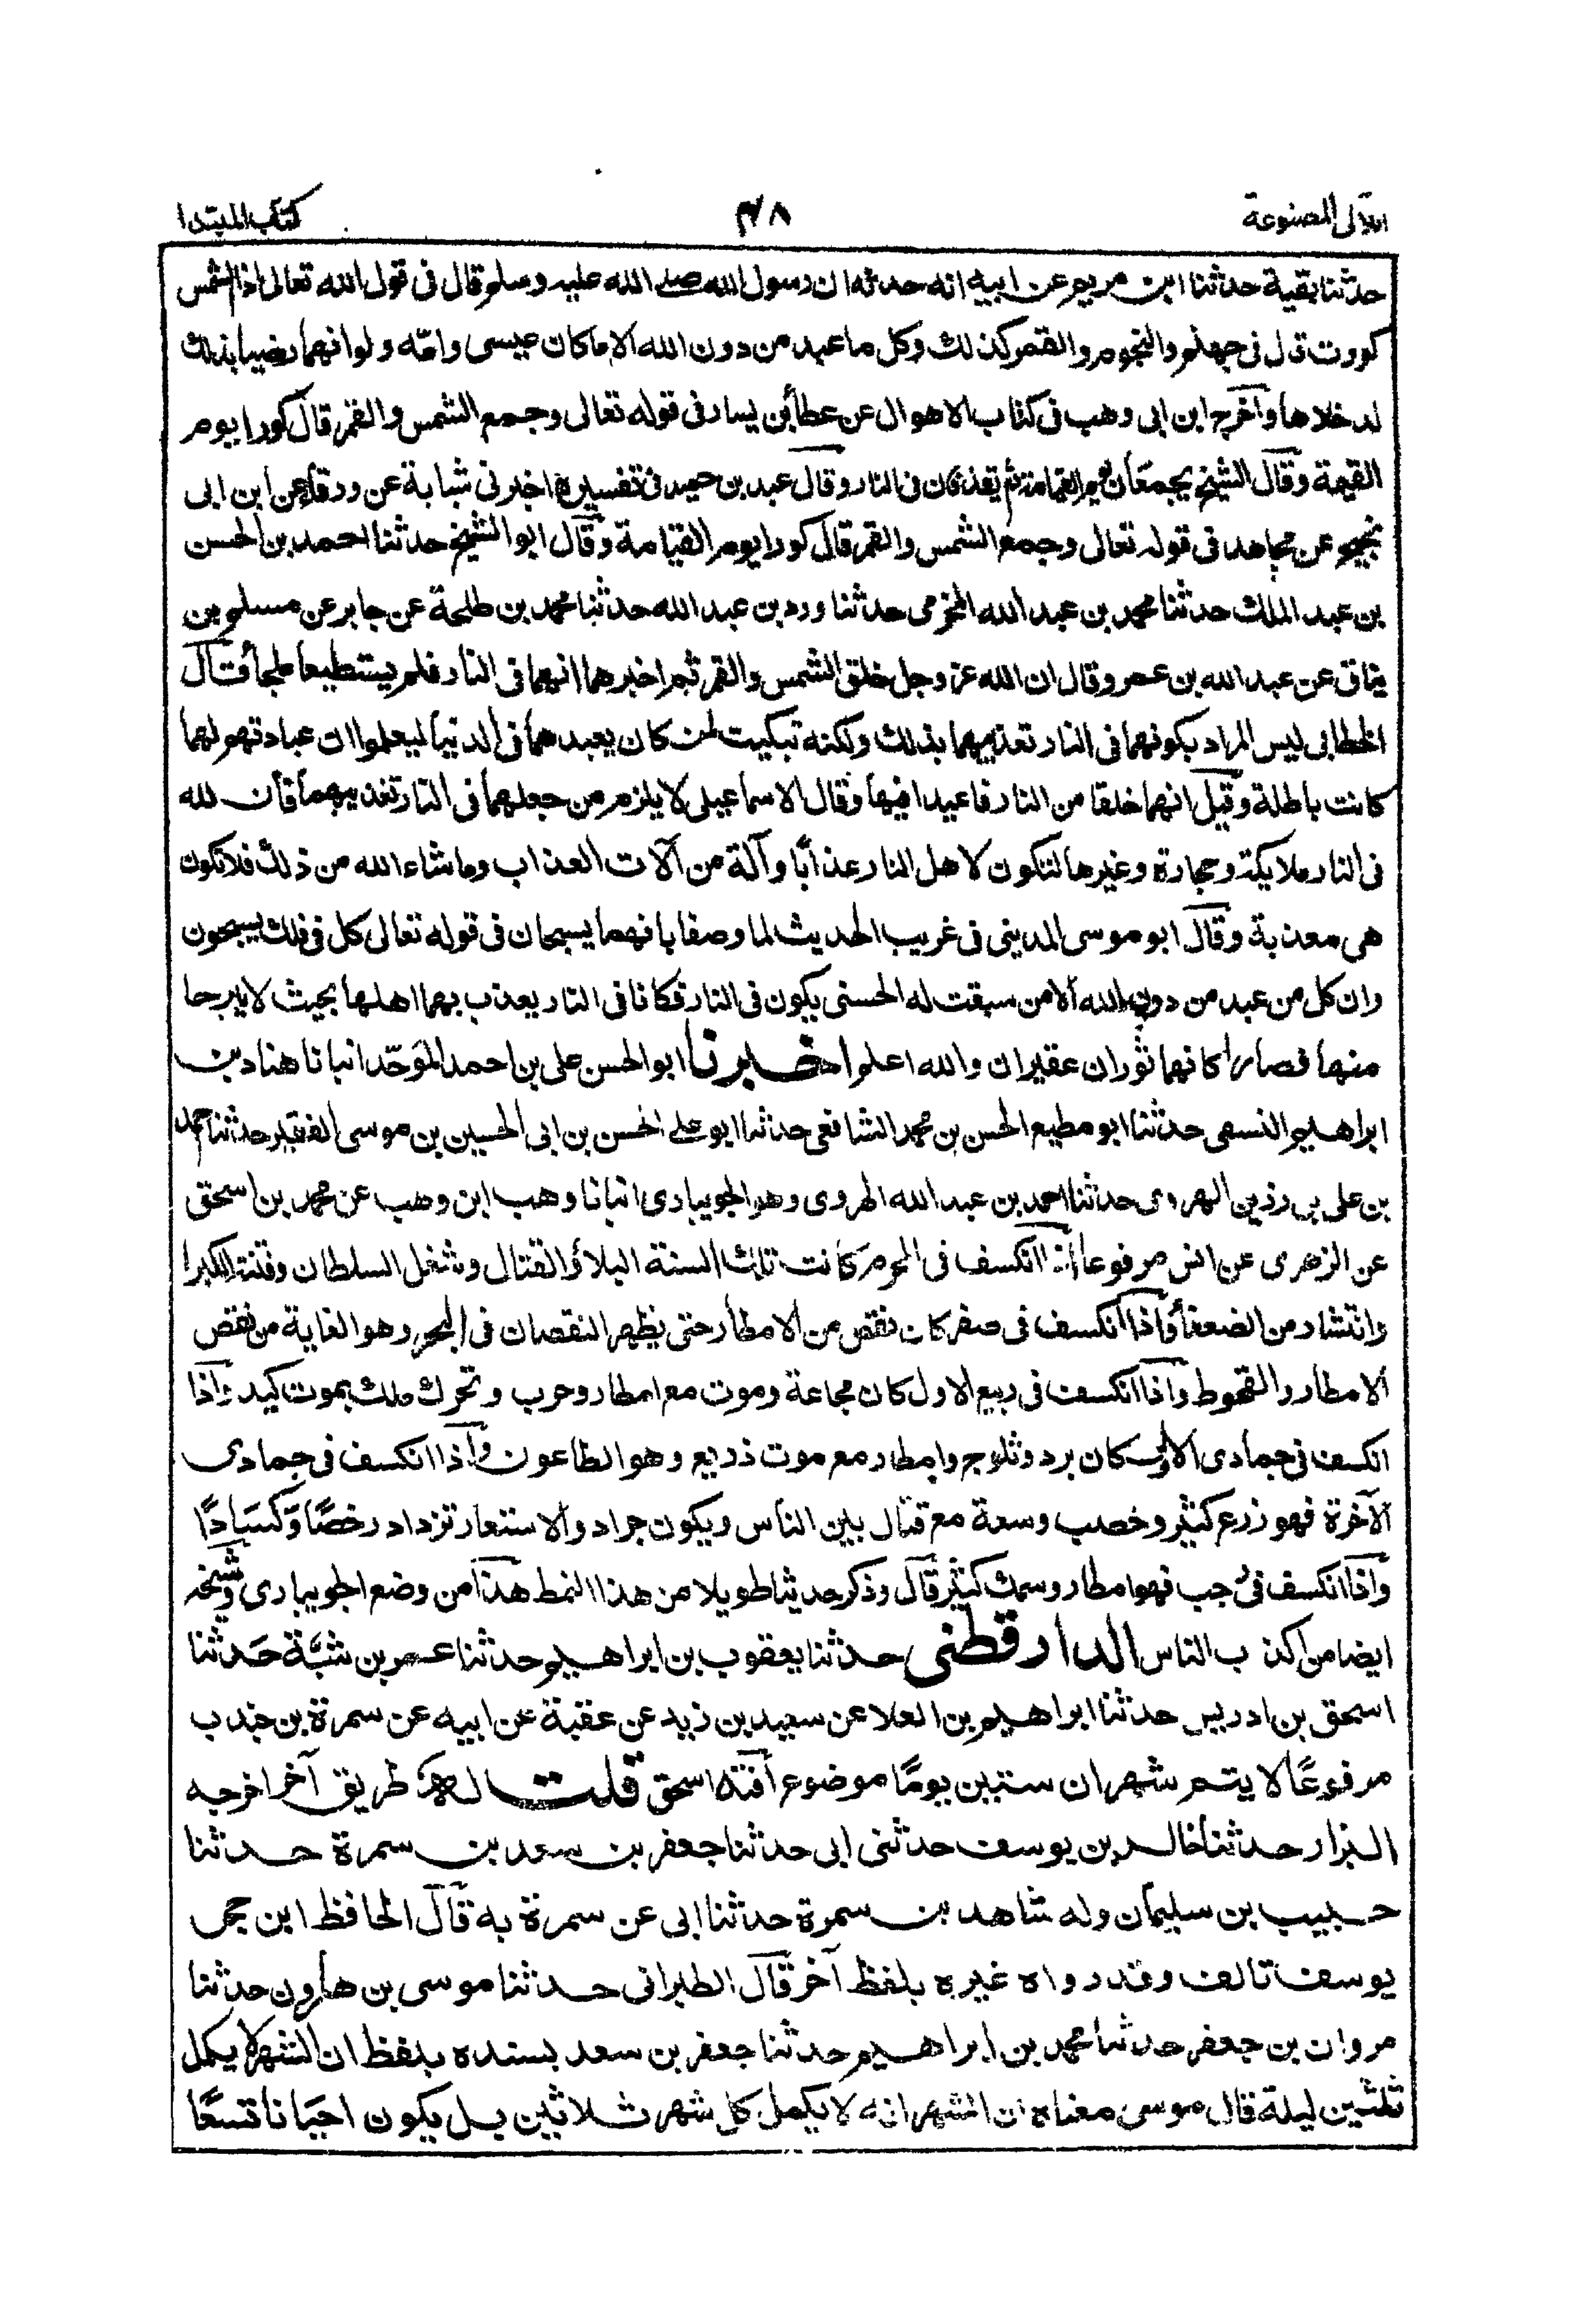 اللآلى المصنوعة
٤٨
كتاب المبتدا
حدثنا بقية حدثنا ابن مريم عن ابيه انه حدثه ان رسول الله صلى الله عليه وسلم قال فى قول الله تعالى اذا الشمس
كورت قال فى جهنم والنجوم والقمر كذلك وكل ما عبد من دون الله الا ما كان عيسى وامّه ولو انهما رضيا بذلك
لدخلاها وأخرج ابن ابى وهب فى كتاب الاهوال عن عطأ بن يسار فى قوله تعالى وجمع الشمس والقمر قال كورا يوم
القيمة وقال الشيخ يجمعان يوم القيامة ثم يقذفان فى النار وقال عبد بن حميد فى تفسيره اخبرنى شبابة عن ورقأ عن ابن ابى
نجيح عن مجاهد فى قوله تعالى وجمع الشمس والقمر قال كورا يوم القيامة وقال ابو الشيخ حدثنا احمد بن الحسن
بن عبد الملك حدثنا محمد بن عبد الله المخرمى حدثنا ورد بن عبد الله حدثنا محمد بن طلحة عن جابر عن مسلم بن
يناق عن عبد الله بن عمرو قال ان الله عز وجل خلق الشمس والقمر ثم اخبرهما انهما فى النار فلم يستطيعا ملجأ قال
الخطابى ليس المراد بكونهما فى النار تعذيبهما بذلك ولكنه تبكيت لمن كان يعبدهما فى الدنيا ليعلموا ان عبادتهم لهما
كانت باطلة وقيل انهما خلقا من النار فاعيدا فيها وقال الاسماعيلى لا يلزم من جعلهما فى النار تعذيبهما فان لله
فى النار ملايكة وحجارة وغيرها لتكون لاهل النار عذابًا وآلة من آلات العذاب وما شاء الله من ذلك فلا تكون
هى معذبة وقال ابو موسى المدينى فى غريب الحديث لما وصفا بانهما يسبحان فى قوله تعالى كل فى فلك يسبحون
وان كل من عبد من دون الله الا من سبقت له الحسنى يكون فى النار فكانا فى النار يعذب بهما اهلها بحيث لا يبرحا
منها فصارا كانهما ثوران عقيران والله اعلم اخبرنا ابو الحسن على بن احمد الموحّد انبانا هناد بن
ابراهيم النسفى حدثنا ابو مطيع الحسن بن محمد الشافعى حدثنا ابو على الحسن بن ابى الحسين بن موسى الفقير حدثنا محمد
بن على بن رزين الهروى حدثنا احمد بن عبد الله الهروى وهو الجويبارى انبانا وهب ابن وهب عن محمد بن اسحق
عن الزهرى عن انس مرفوعا اذا انكسف فى المحرم كانت تلك السنة البلأ والقتال وشغل السلطان وفتنة الكبرا
وانتشار من الضعفأ واذا انكسف فى صفر كان نقص من الامطار حتى يظهر النقصان فى البحر وهو الغاية من نقص
الامطار والقحوط واذا انكسف فى ربيع الاول كان مجاعة وموت مع امطار وحرب وتحرك ملك بموت كيد واذا
انكسف فى جمادى الاولى كان برد وثلوج وامطار مع موت ذريع وهو الطاعون واذا انكسف فى جمادى
الآخرة فهو زرع كثير وخصب وسعة مع قتال بين الناس ويكون جراد والاستعار تزداد رخصًا وكسادًا
واذا انكسف فى رجب فهو امطار وسمك كثير قال وذكر حديثا طويلا من هذا النمط هذا من وضع الجويبارى وشيخه
ايضا من اكذب الناس الدارقطنى حدثنا يعقوب بن ابراهيم حدثنا عمر بن شبّة حدثنا
اسحق بن ادريس حدثنا ابراهيم بن العلا عن سعيد بن زيد عن عقبة عن ابيه عن سمرة بن جندب
مرفوعًا لا يتم شهران ستين يومًا موضوع آفته اسحق قلت له طريق آخر اخرجه
البزار حدثنا خالد بن يوسف حدثنى ابى حدثنا جعفر بن سعد بن سمرة حدثنا
حبيب بن سليمان وله شاهد بن سمرة حدثنا ابى عن سمرة به قال الحافظ ابن حجر
يوسف تالف وقد رواه غيره بلفظ آخر قال الطبرانى حدثنا موسى بن هارون حدثنا
مروان بن جعفر حدثنا محمد بن ابراهيم حدثنا جعفر بن سعد بسنده بلفظ ان الشهر لا يكمل
ثلثين ليلة قال موسى معناه ان الشهر انه لا يكمل كل شهر ثلاثين بل يكون احيانا تسعًا